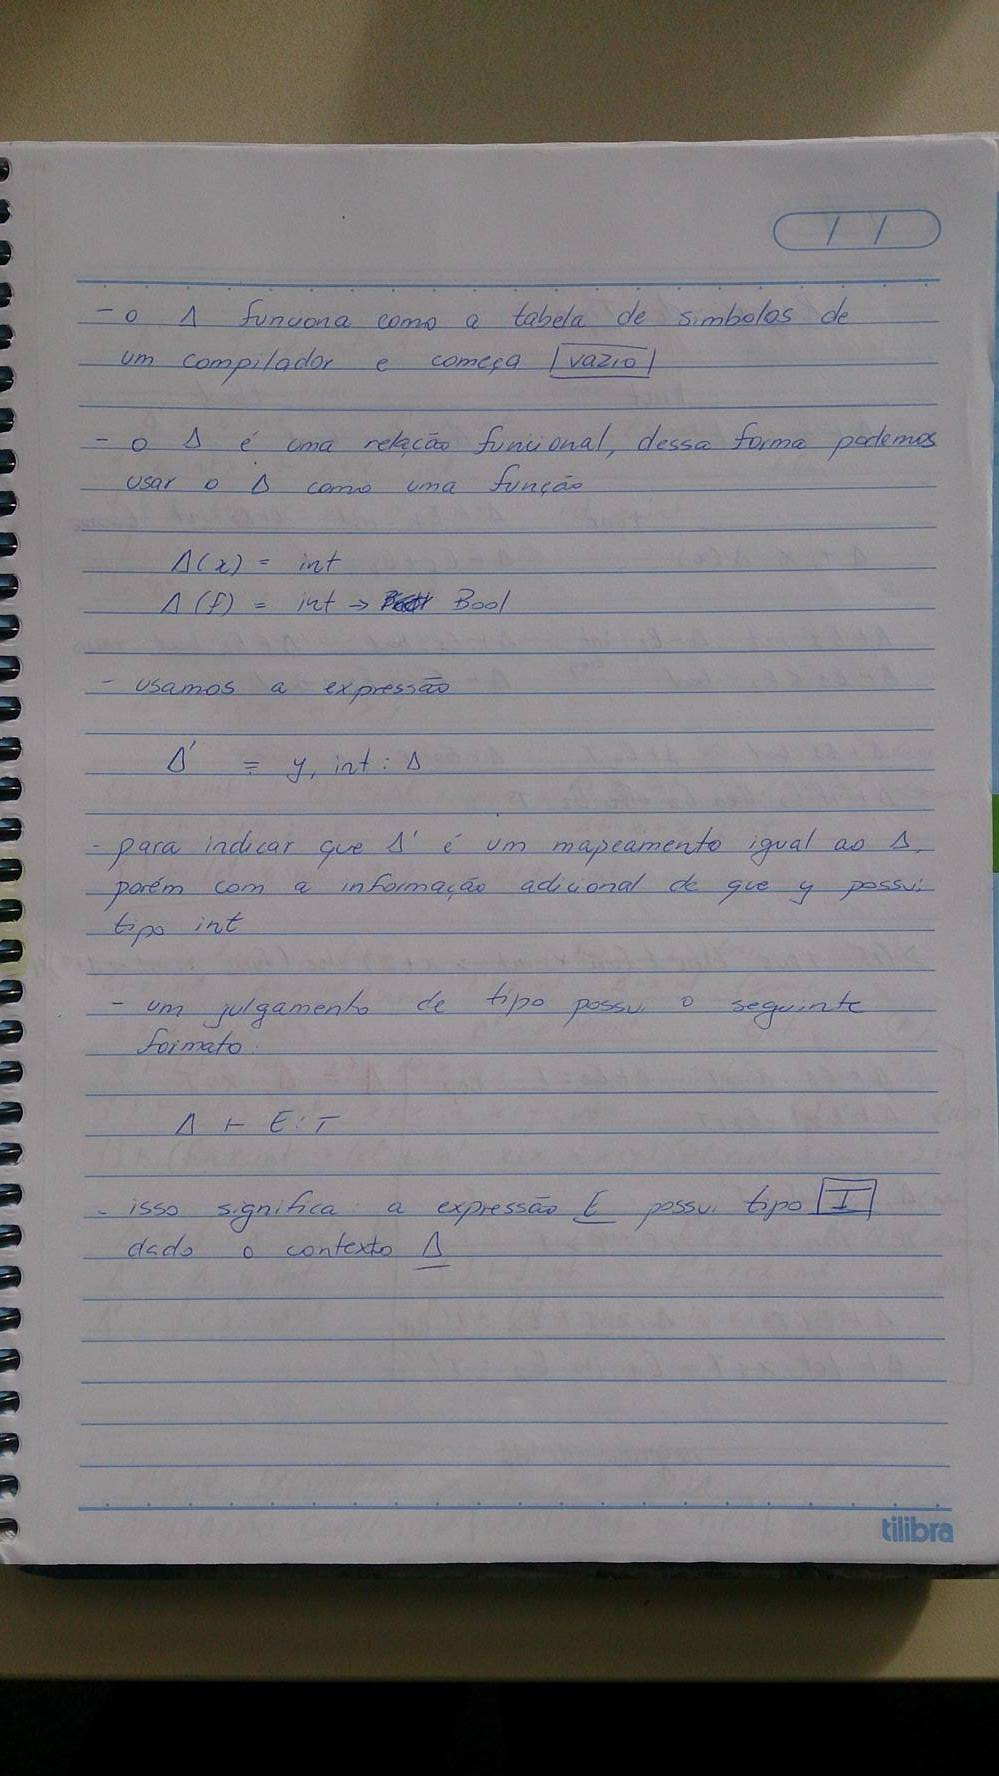 / /
- o Δ funciona como a tabela de simbolos de
um compilador e começa |vazio|
- o Δ é uma relação funcional, dessa forma podemos
usar o Δ como uma função
Δ(x) = int
Δ(f) = int → Bool
- usamos a expressão
Δ' = y, int : Δ
- para indicar que Δ' é um mapeamento igual ao Δ,
porém com a informação adicional de que y possui
tipo int
- um julgamento de tipo possui o seguinte
formato:
Δ ⊢ E : T
- isso significa: a expressão E possui tipo T
dado o contexto Δ
tilibra